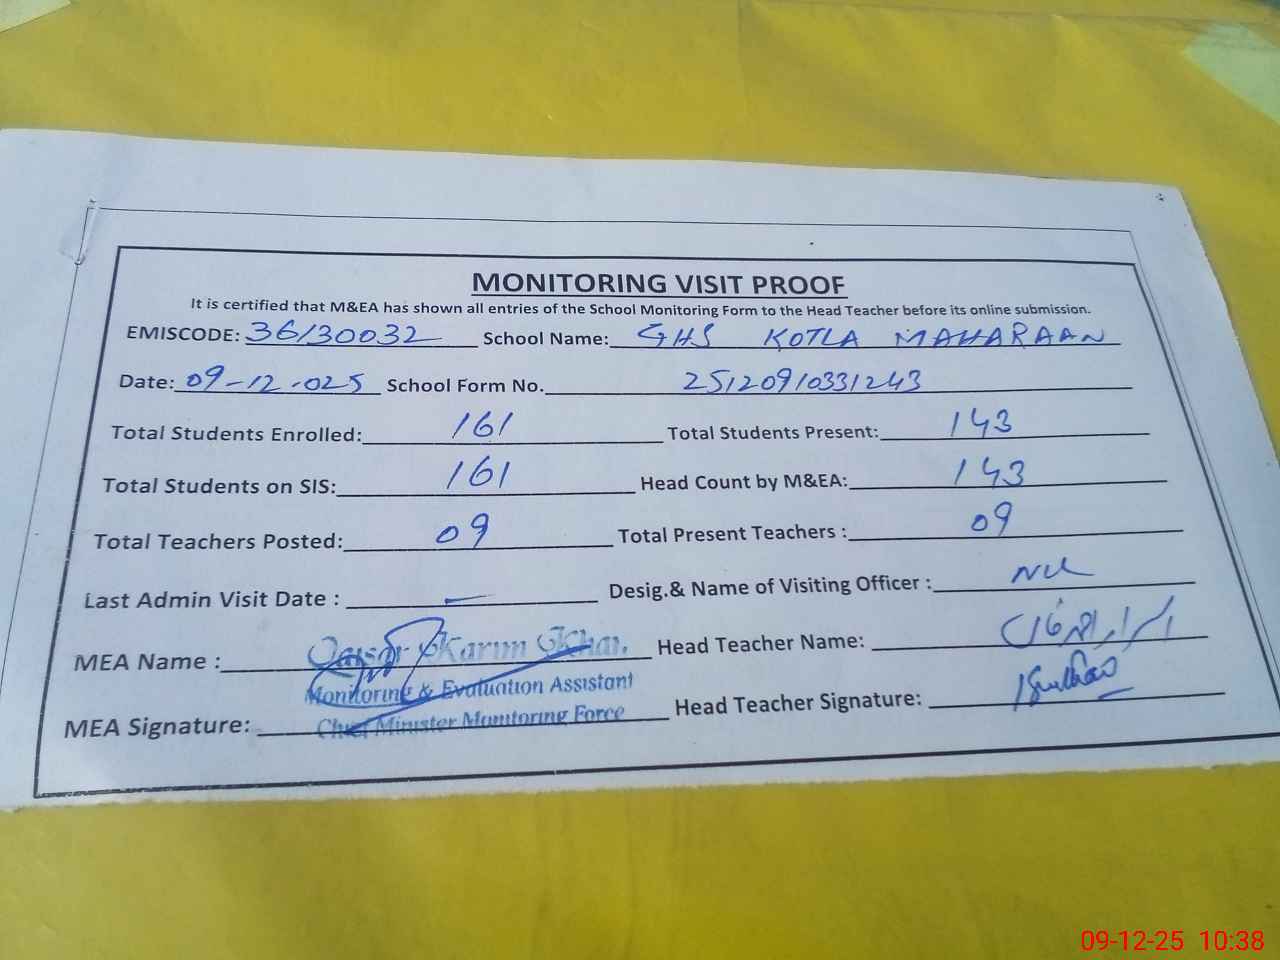 MONITORING VISIT PROOF
It is certified that M&EA has shown all entries of the School Monitoring Form to the Head Teacher before its online submission.
EMISCODE: 36130032 School Name: GHS KOTLA MAHARAAN
Date: 09-12-025 School Form No. 25120910331243
Total Students Enrolled: 161 Total Students Present: 143
Total Students on SIS: 161 Head Count by M&EA: 143
Total Teachers Posted: 09 Total Present Teachers : 09
Last Admin Visit Date : — Desig.& Name of Visiting Officer : Nil
MEA Name : Karim Khan Head Teacher Name:
Monitoring & Evaluation Assistant
MEA Signature: Chief Minister Monitoring Force Head Teacher Signature:
09-12-25 10:38